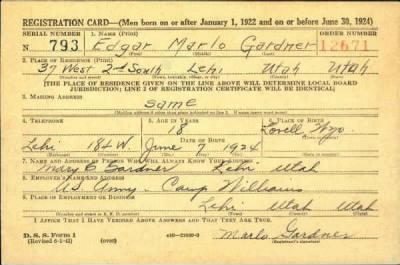 REGISTRATION CARD—(Men born on or after January 1, 1922 and on or before June 30, 1924)
SERIAL NUMBER 1. NAME (Print) ORDER NUMBER
N 793 Edgar Marlo Gardner 12671
(First) (Middle) (Last)
2. PLACE OF RESIDENCE (Print)
37 West 2nd South Lehi Utah Utah
(Number and street) (Town, township, village, or city) (County) (State)
[THE PLACE OF RESIDENCE GIVEN ON THE LINE ABOVE WILL DETERMINE LOCAL BOARD
JURISDICTION; LINE 2 OF REGISTRATION CERTIFICATE WILL BE IDENTICAL]
3. MAILING ADDRESS
Same
[Mailing address if other than place indicated on line 2. If same insert word same]
4. TELEPHONE 5. AGE IN YEARS 6. PLACE OF BIRTH
18 Lovell
DATE OF BIRTH
Lehi 184W. June 7 1924 Wyo.
(Exchange) (Number) (Mo.) (Day) (Yr.) (State or country)
7. NAME AND ADDRESS OF PERSON WHO WILL ALWAYS KNOW YOUR ADDRESS
Mary E Gardner Lehi Utah
8. EMPLOYER'S NAME AND ADDRESS
U.S. Army - Camp Williams
9. PLACE OF EMPLOYMENT OR BUSINESS
Lehi Utah Utah
(Number and street or R. F. D. number) (Town) (County) (State)
I AFFIRM THAT I HAVE VERIFIED ABOVE ANSWERS AND THAT THEY ARE TRUE.
D. S. S. Form 1
(Revised 6-1-42) (over) Marlo Gardner
(Registrant's signature)